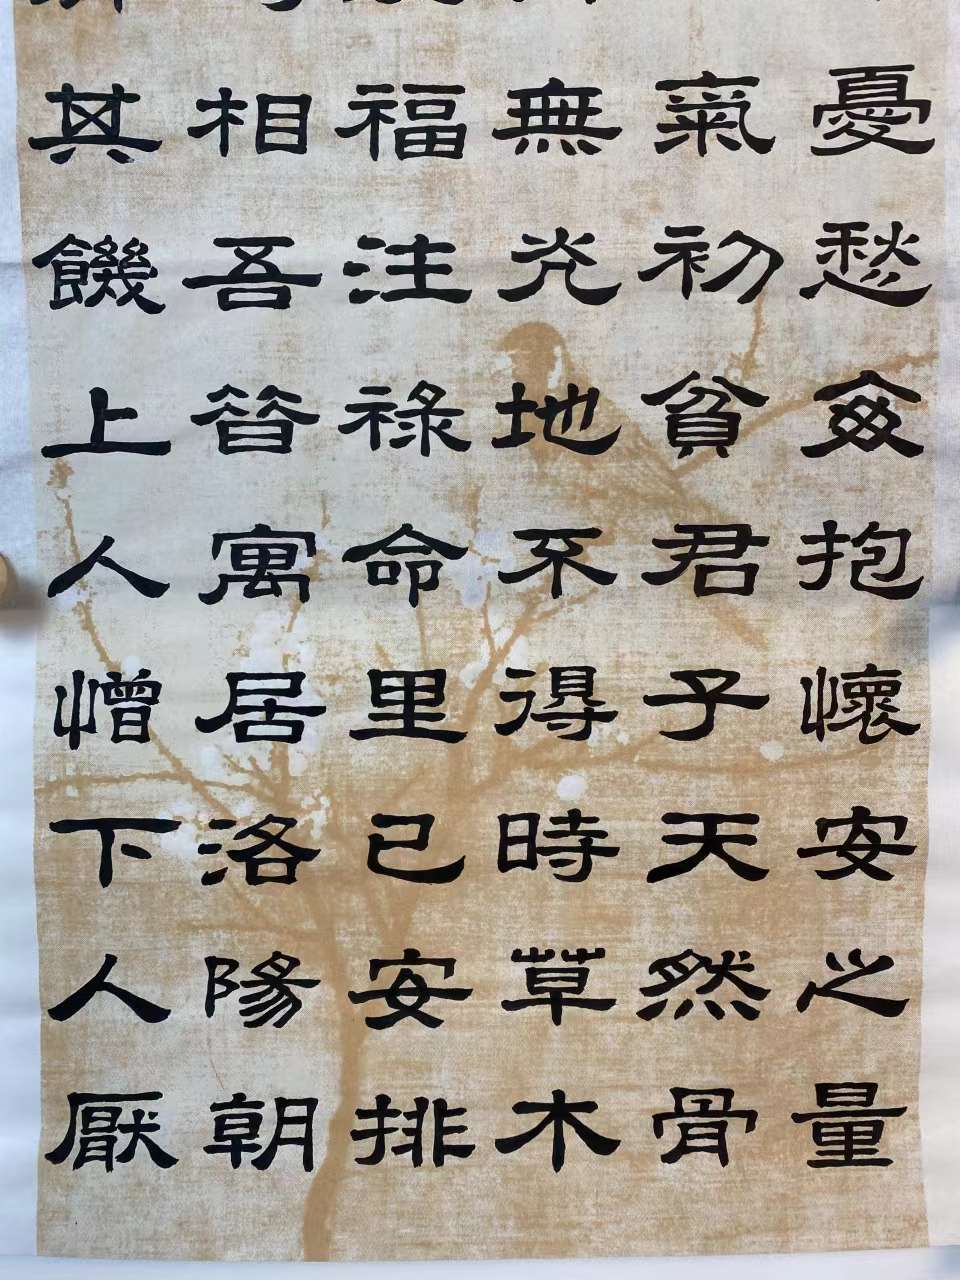 憂愁抱懷安之量
氣初貧君子天然骨
無光地不得時草木
福注祿命里已安排
相吾昔寓居洛陽朝
其饑上人憎下人厭